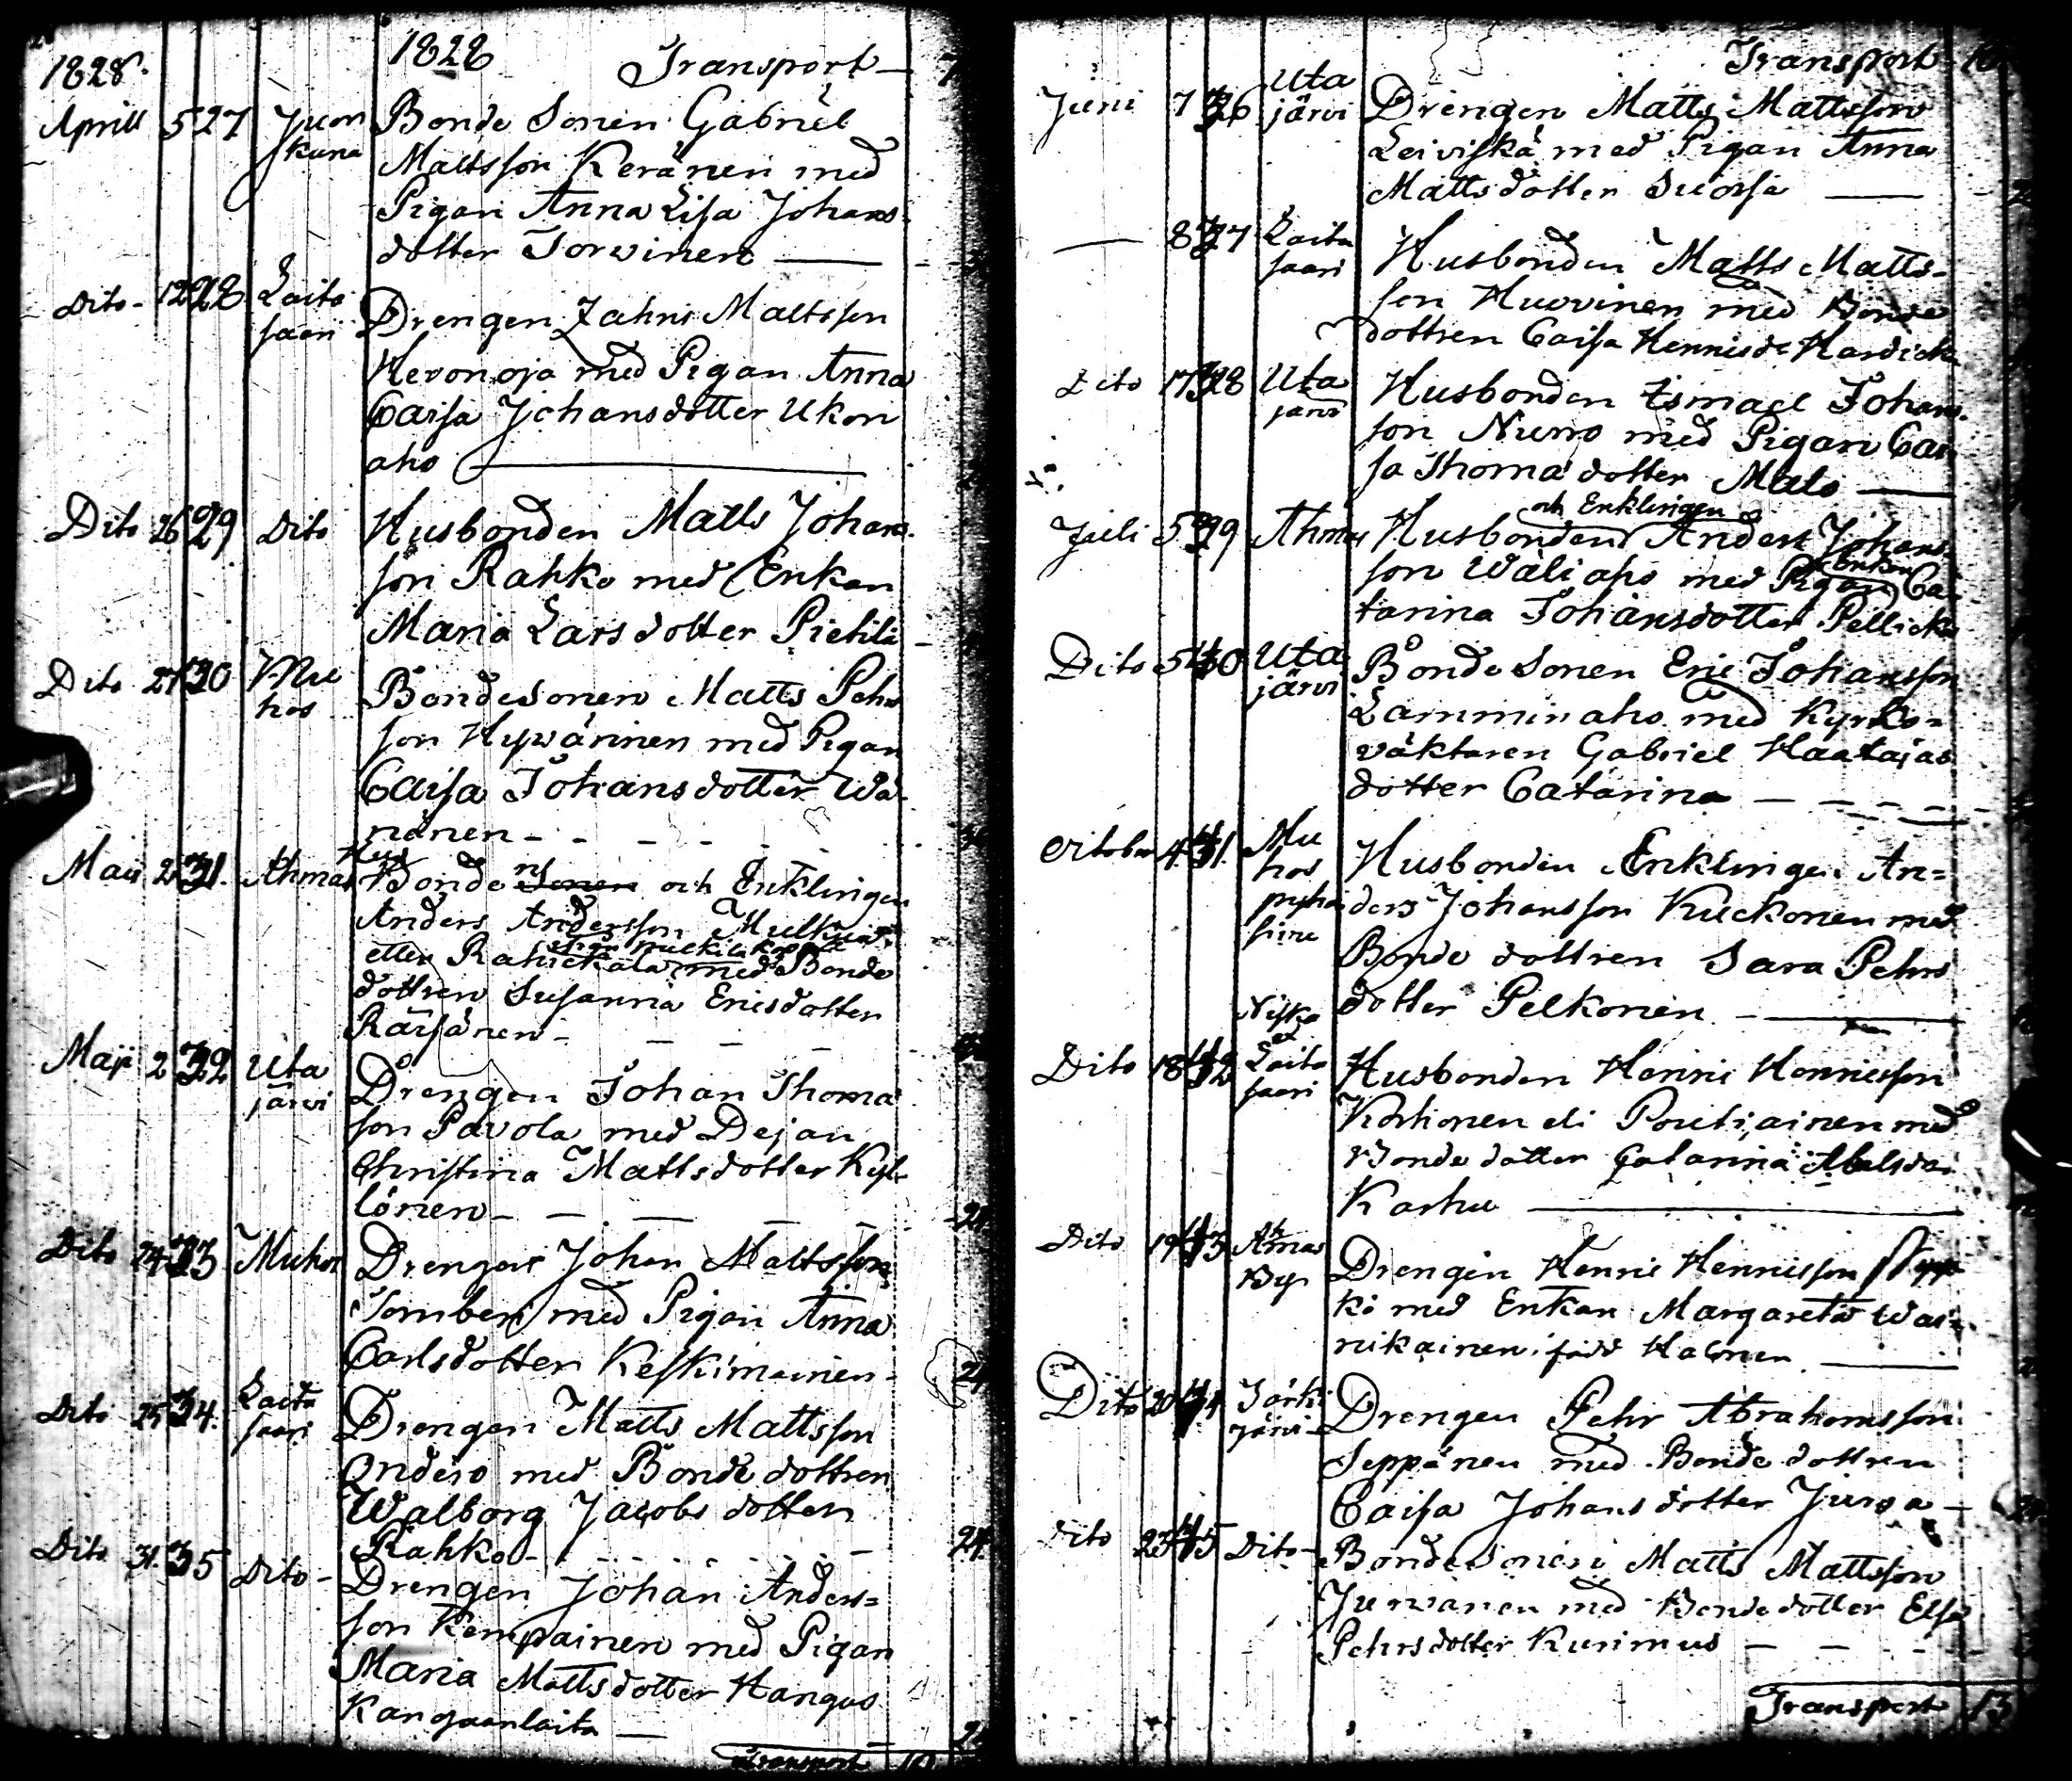 1828.
1828 Transport
Aprill 5 27 Juor Bonde Sonen Gabriel
kuna Mattsson Keränen med
Pigan Anna Lisa Johans-
dotter Torvinen
Dito 12 28 Laita Drengen Zahris Mattsson
saari
Hevonoja med Pigan Anna
Caisa Johansdotter Ukon
aho
Dito 26 29 Dito Husbonden Matts Johans-
son Rahko med Enkan
Maria Larsdotter Pietilä
Dito 27 30 Mu Bondesonen Matts Pehr
hos
son Hyvärinen med Pigan
Caisa Johansdotter Wä-
nänen
Maii 2 31. Ahmas Bonde och Enklingen
Anders Andersson
eller med Bonde
dottren Susanna Ericsdotter
Räisänen
Maji 2 32 Uta Drengen Johan Thoma
järvi
son Pavola med Dejan
Christina Mattsdotter Kyl-
lönen
24
Dito 24 33 Muhos Drengen Johan Mattsson
Tomberi med Pigan Anna
Carlsdotter Keskimainen
24
Dito 25 34. Laita Drengen Matts Mattsson
saari
Onders med Bonde dottren
Walborg Jacobs dotter
Rahko 24
Dito 31. 35 Dito Drengen Johan Anders=
son Kempainen med Pigan
Maria Mattsdotter Hangus
Kangaanlaita
Transport 10
Transport 10
Juni 7 36 Uta Drengen Matts Mattsson
järvi
Leiviskä med Pigan Anna
Matts dotter Suorsa
8 37 Laita Husbonden Matts Matts-
saari
son Huovinen med Bonde
dottren Caisa Hennisdr Hardick
Dito 17 38 Uta Husbonden Ismael Johans-
järvi
son Nuoro med Pigan Cai
sa Thoma dotter Mälo
och Enklingen
Juli 5 39 Ahmas Husbonden Anders Johans-
son Wäliaho med Pigan Enkan Ca-
tarina Johansdotter Pellicka
Dito 5 40 Uta Bonde Sonen Eric Johansson
järvi
Lamminaho med Kyrko=
väktaren Gabriel Haatajas
dotter Catarina
October 4 41. Mu Husbonden Enklingen An=
hos
pyhä ders Johansson Kuckonen med
Bonde dottren Sara Pehrs
Niska dotter Pelkonen
Dito 18 42 Laita Husbonden Henric Henricsson
saari
Korhonen eli Poutiainen med
Bonde dotter Catarina
Karhu
Dito 19 43 Ahmas Drengen Henric Henricsson
By
kö med Enkan Margareta Wai-
nikainen född Halonen
Dito 20 44 Sörki Drengen Pehr Abrahamsson
järvi
Seppänen med Bonde dottren
Caisa Johansdotter Jurva
Dito 25 45 Dito Bonde Sonen Matts Mattsson
Jurvanen med Bondedotter Elsa
Pehrsdotter Kurimus
Transport 13